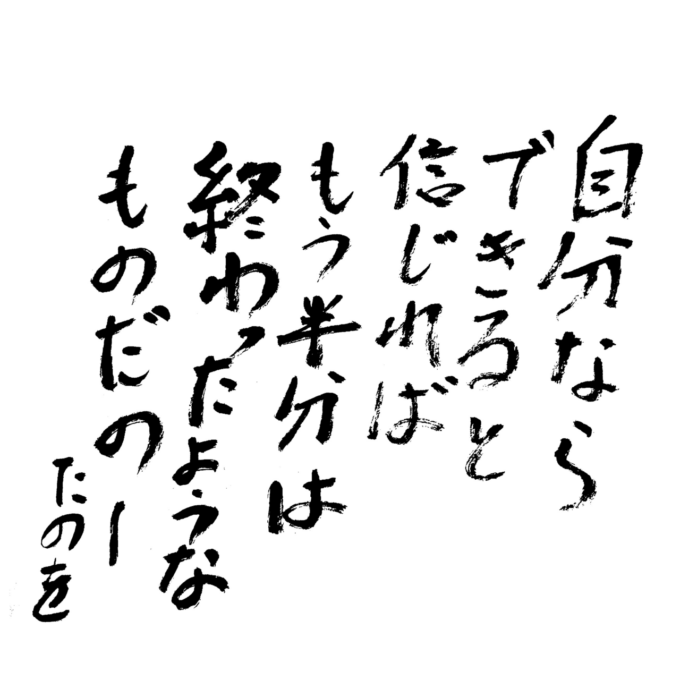 自分なら
できると
信じれば
もう半分は
終わったような
ものだのー
たのを